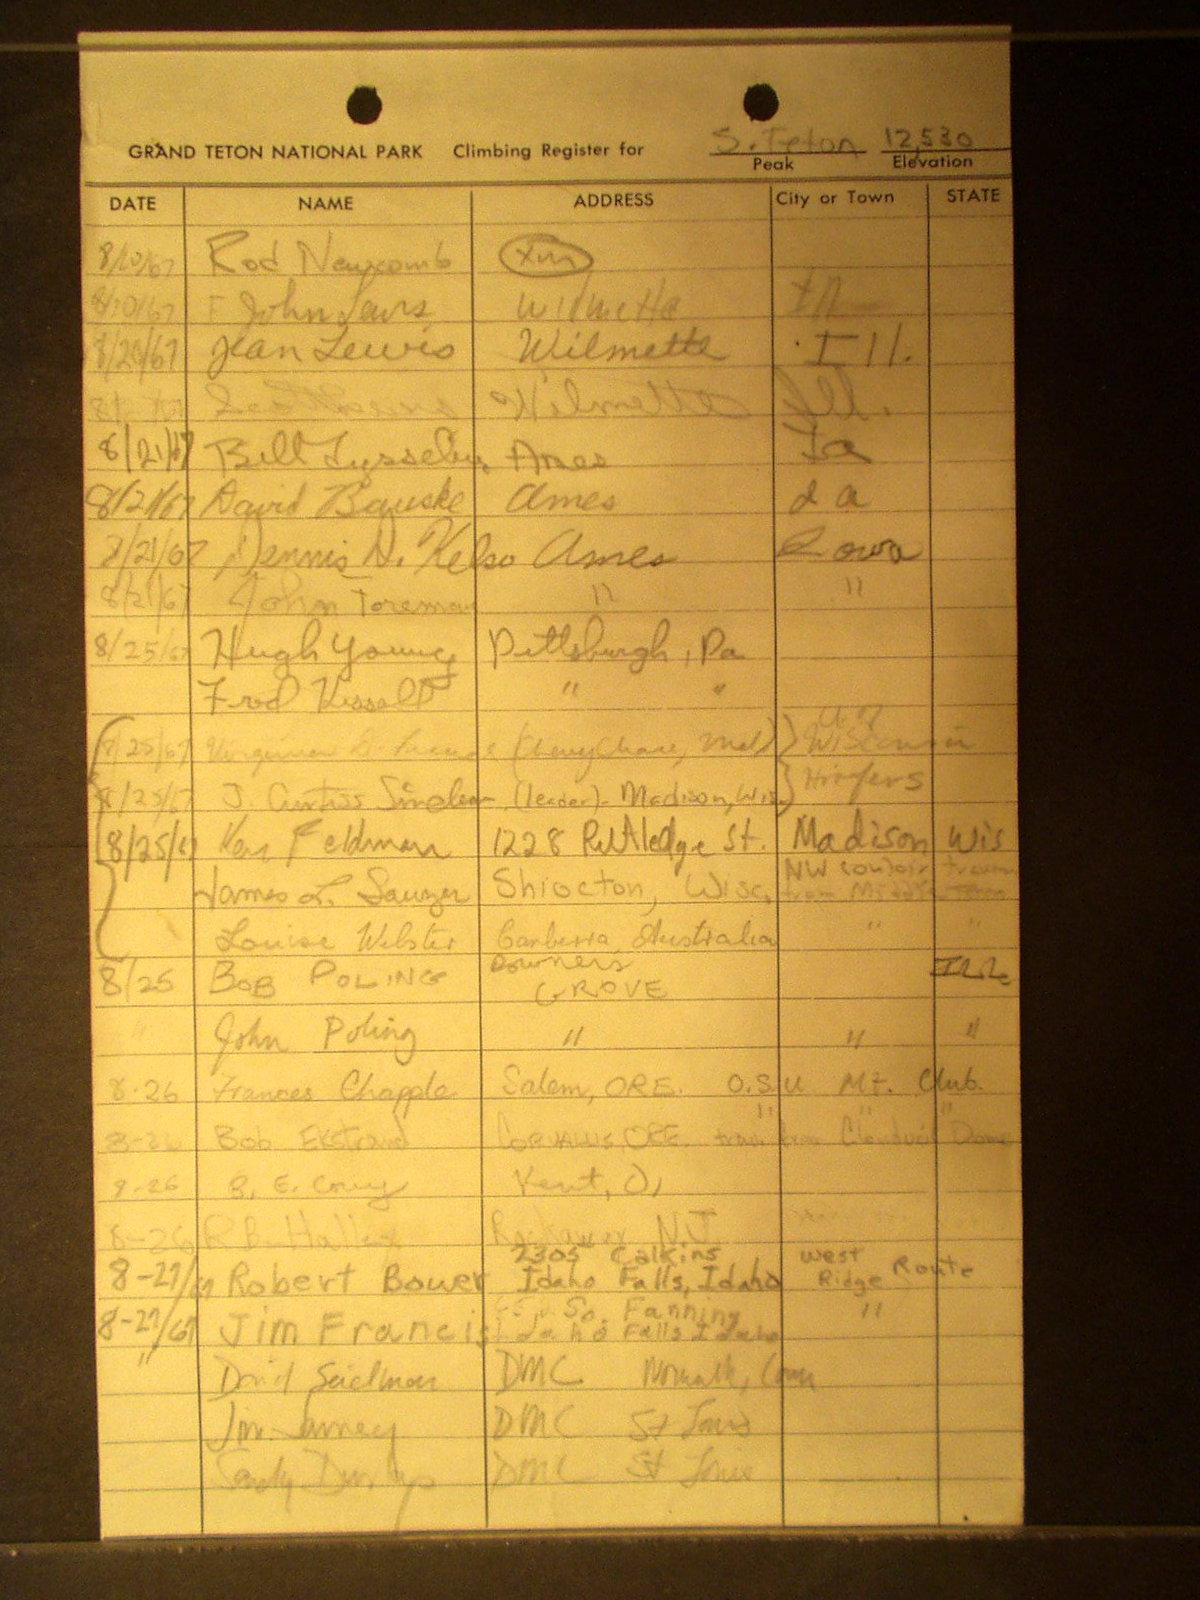 S. Teton 12,530
GRAND TETON NATIONAL PARK Climbing Register for Peak Elevation
DATE NAME ADDRESS City or Town STATE
8/20/67 Rod Newcomb
8/20/67 John Wilmette Ill
8/20/67 Jean Lewis Wilmette Ill.
Wilmette Ill.
8/21/67 Bill Ames Ia
8/21/67 David Bauske Ames Ia
8/21/67 Dennis N. Kelso Ames Iowa
8/21/67 John Foreman " "
8/25/67 Hugh Young Pittsburgh, Pa
Fred Kissell " "
8/25/67 Virginia (Chevy Chase, Md) U of Wisconsin
8/25/67 J. Curtiss (leader) - Madison, Wis. Hoofers
8/25/67 Ken Feldman 1228 Rutledge St. Madison Wis
James L. Sawyer Shiocton, Wisc. NW couloir traverse from Middle Teton
Louise Webster Canberra Australia " "
8/25 BOB POLING DOWNERS GROVE ILL.
" John Poling " " "
8-26 Frances Chapple Salem, ORE. O.S.U Mt. Club.
" " "
8-26 Bob Ekstrand CORVALLIS, ORE. from Cloudveil Dome
8-26 Kent, O,
8-26 N.J.
8-27/67 Robert Bower 2305 Calkins Idaho Falls, Idaho West Ridge Route
8-27/67 Jim Francis So. Fanning Idaho Falls Idaho "
" David DMC Norwalk, Conn
Jim DMC St Louis
Sandy DMC St Louis